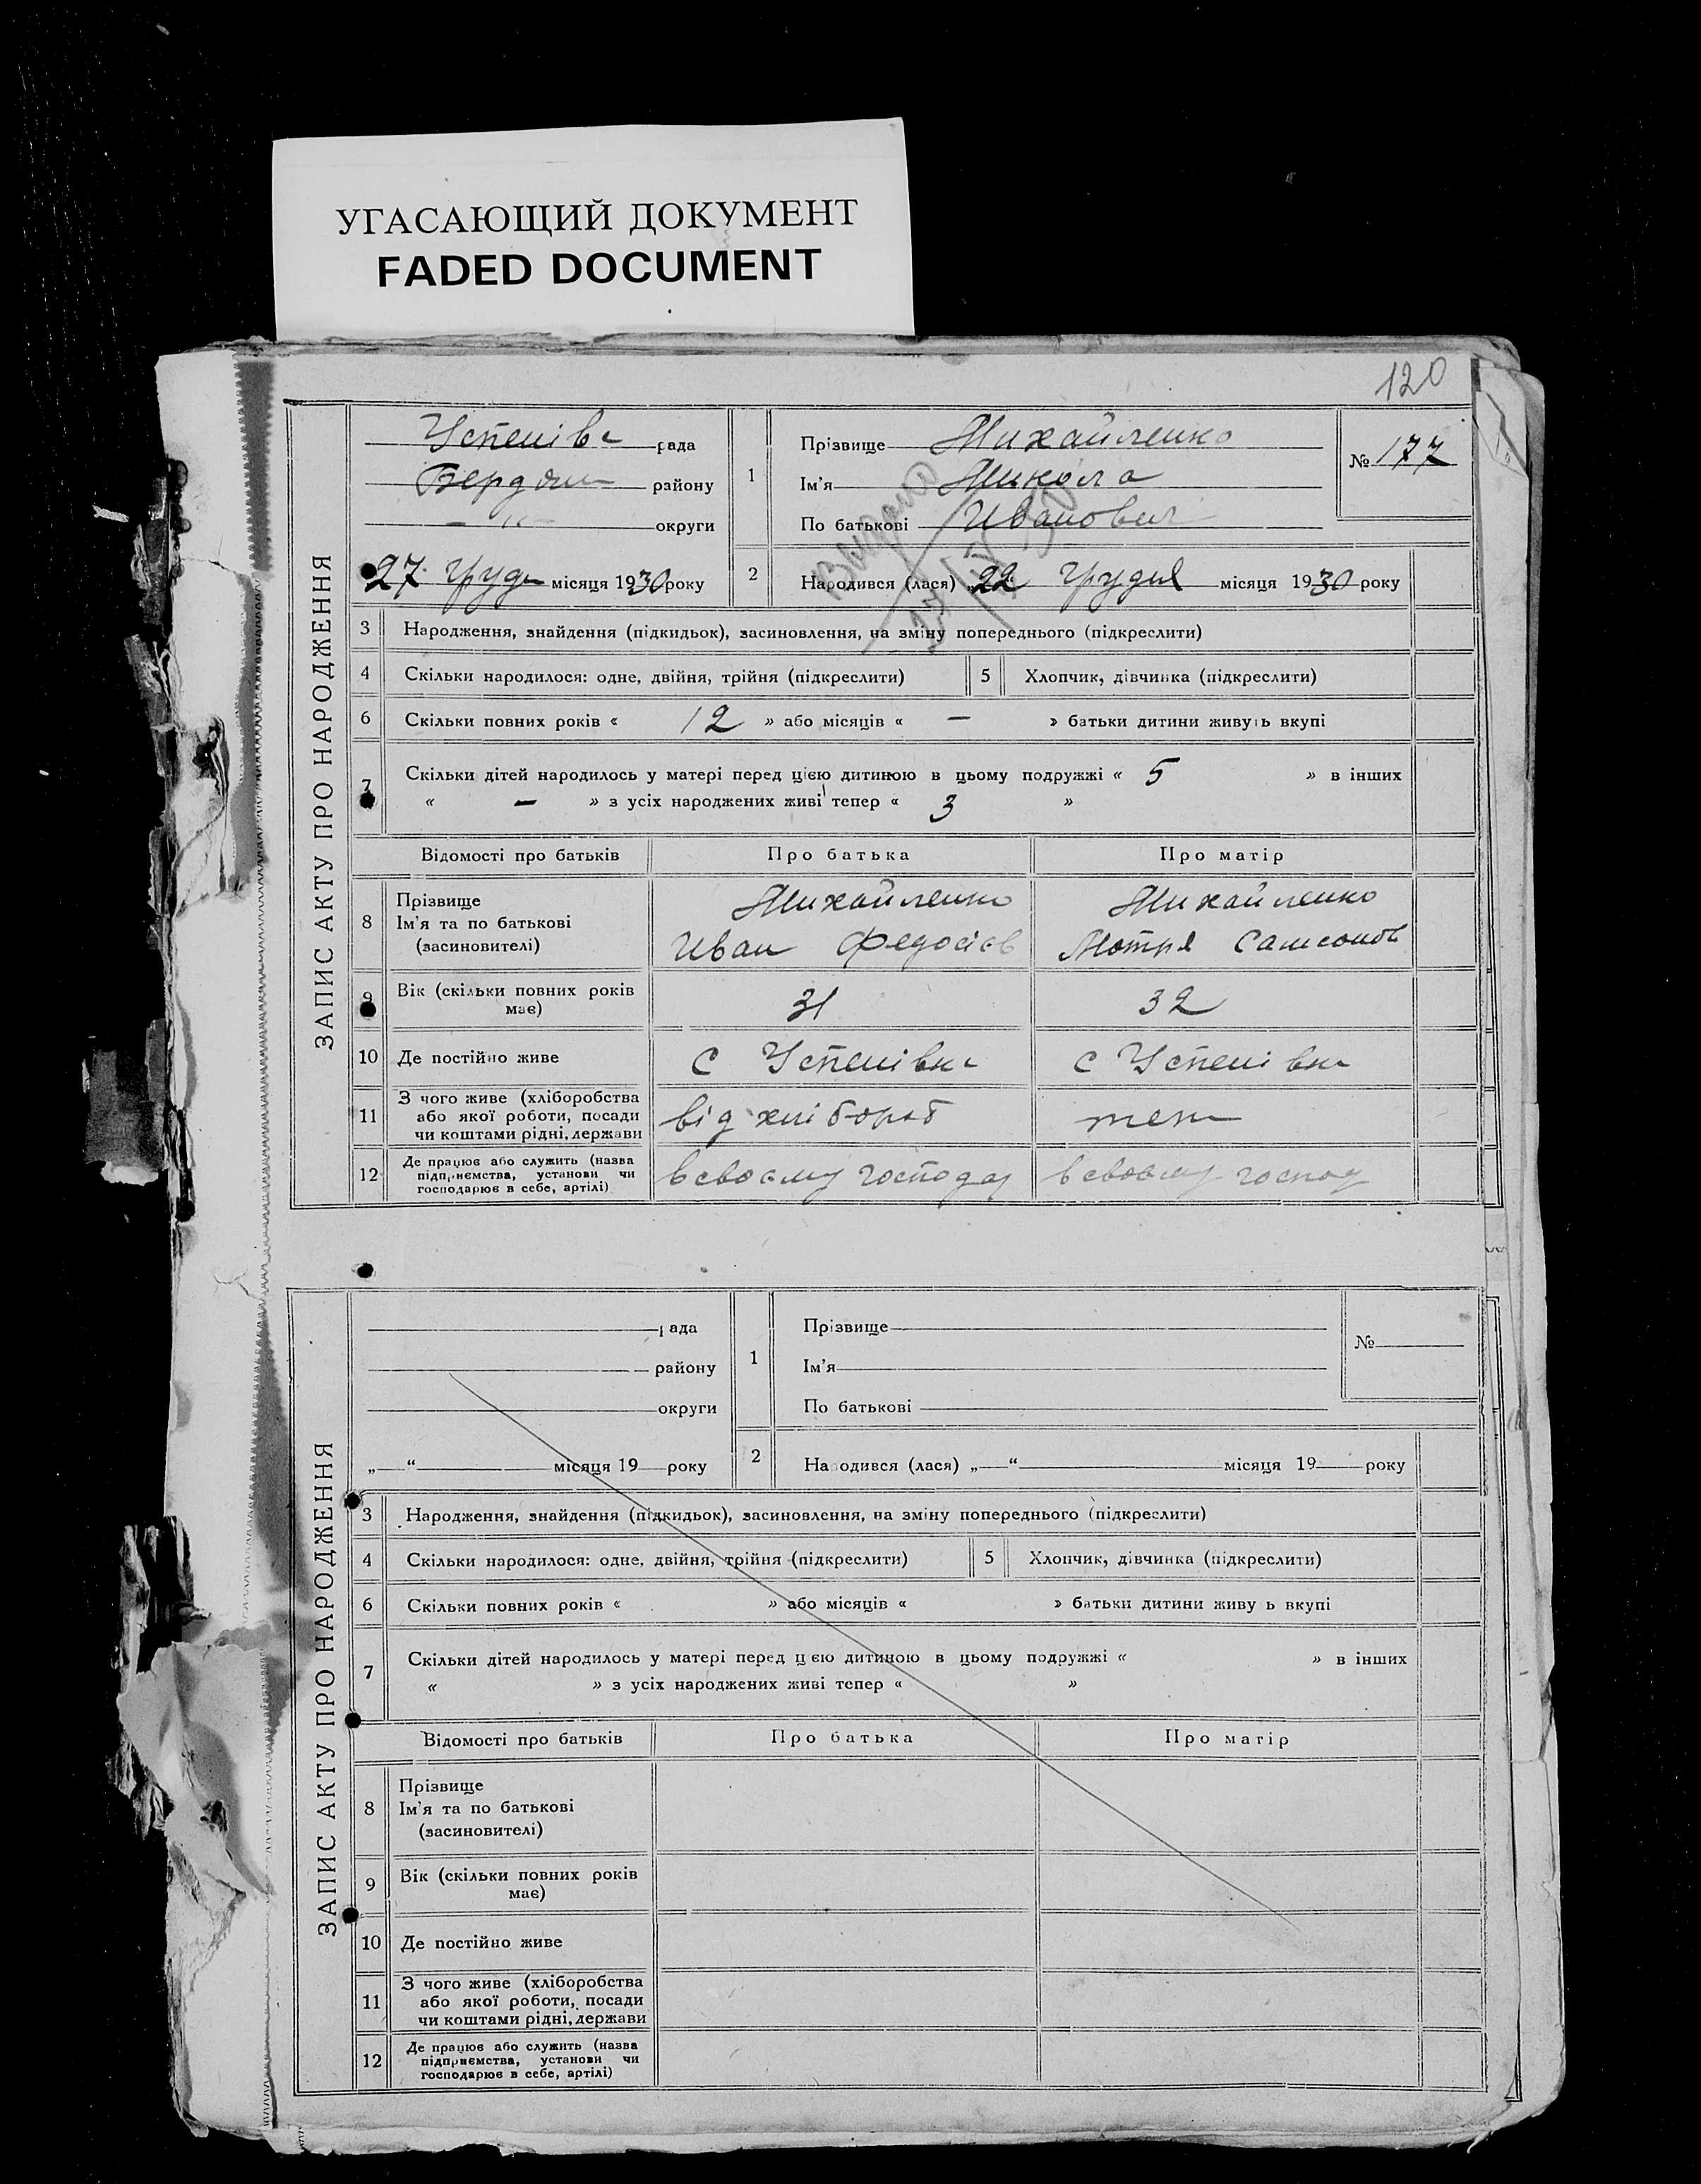 УГАСАЮЩИЙ ДОКУМЕНТ
FADED DOCUMENT
120
ЗАПИС АКТУ ПРО НАРОДЖЕННЯ
Успенівс рада
Бердян району
— "— округи
27 Груд місяця 1930 року
1 Прізвище Михайленко
Ім'я Микола
По батькові Иванович
№ 177
Видано
2 Народився (лася) „22 Грудня місяця 1930 року
3 Народження, знайдення (підкидьок), засиновлення, на зміну попереднього (підкреслити)
4 Скільки народилося: одне, двійня, трійня (підкреслити) 5 Хлопчик, дівчинка (підкреслити)
6 Скільки повних років « 12 » або місяців « — » батьки дитини живуть вкупі
7 Скільки дітей народилось у матері перед цією дитиною в цьому подружжі « 5 » в інших
« — » з усіх народжених живі тепер « 3 »
Відомості про батьків Про батька Про матір
8 Прізвище Михайленко Михайленко
Ім'я та по батькові
(засиновителі) Иван Федосієв Мотря Самсонов
9 Вік (скільки повних років
має) 31 32
10 Де постійно живе с Успенівка с Успенівка
11 З чого живе (хліборобства
або якої роботи, посади
чи коштами рідні, держави від хлібороб теж
12 Де працює або служить (назва
підприємства, установи чи
господарює в себе, артілі) в своєму господ в своєму господ
ЗАПИС АКТУ ПРО НАРОДЖЕННЯ
рада
району
округи
„—“ місяця 19 року
1 Прізвище
Ім'я
По батькові
№
2 Народився (лася) „—“ місяця 19 року
3 Народження, знайдення (підкидьок), засиновлення, на зміну попереднього (підкреслити)
4 Скільки народилося: одне, двійня, трійня (підкреслити) 5 Хлопчик, дівчинка (підкреслити)
6 Скільки повних років « » або місяців « » батьки дитини живу ь вкупі
7 Скільки дітей народилось у матері перед цією дитиною в цьому подружжі « » в інших
« » з усіх народжених живі тепер « »
Відомості про батьків Про батька Про матір
8 Прізвище
Ім'я та по батькові
(засиновителі)
9 Вік (скільки повних років
має)
10 Де постійно живе
11 З чого живе (хліборобства
або якої роботи, посади
чи коштами рідні, держави
12 Де працює або служить (назва
підприємства, установи чи
господарює в себе, артілі)